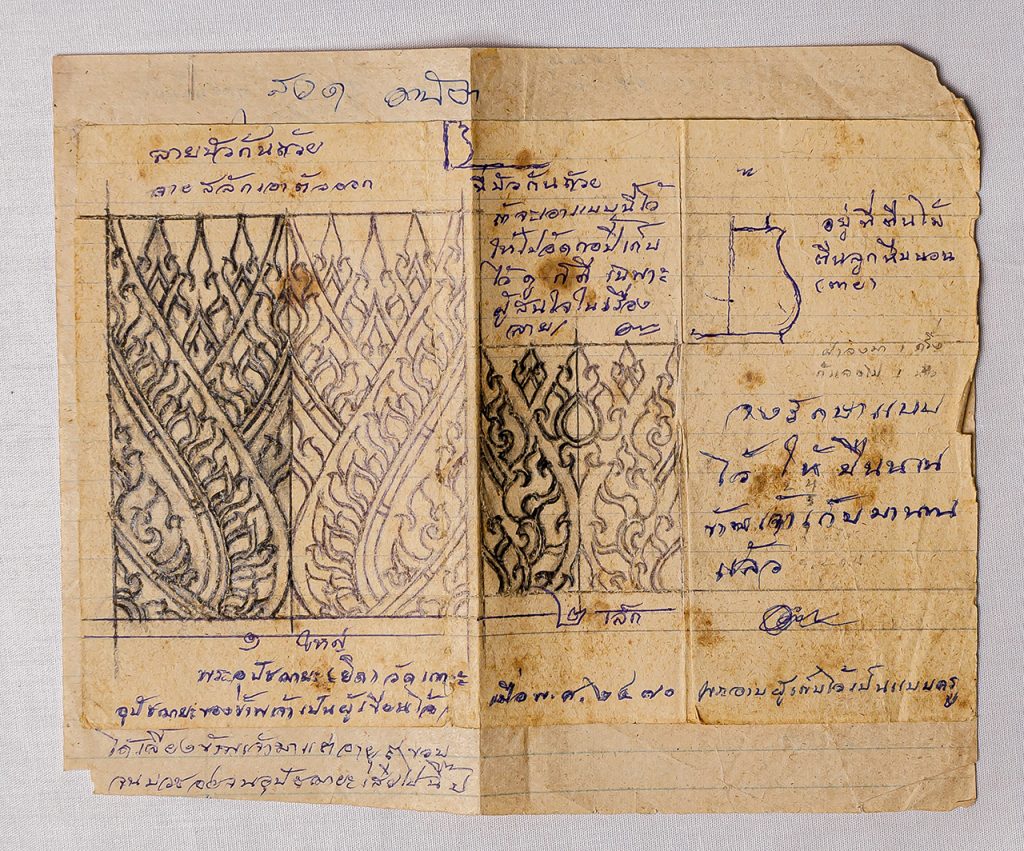 ลายบัวก้นถ้วย
ลายสลักเอาตัวออก
ที่บัวก้นถ้วย
ถ้าจะเอาแบบนี้ไว้
ให้ไปอัดก๊อปปี้เก็บ
ไว้ดู ก็ดี เฉพาะ
ผู้สนใจในเรื่อง
ลาย
อยู่ที่ตีนไม้
ตีนลูกหีบนอน
(ตาย)
จงรักษาแบบ
ไว้ ให้ยืนนาน
ข้าพเจ้าเก็บมานาน
แล้ว
๑ ใหญ่
๒ เล็ก
พระอุปัชฌายะ (ยิด) วัดเกาะ
อุปัชฌายะของข้าพเจ้าเป็นผู้เขียนไว้
เมื่อ พ.ศ. ๒๔๗๐
ผู้เก็บไว้เป็นแบบครู
ได้เลี้ยงข้าพเจ้ามาแต่อายุ ขวบ
จนบวชอยู่จนอุปัชฌายะเสียไปนี้